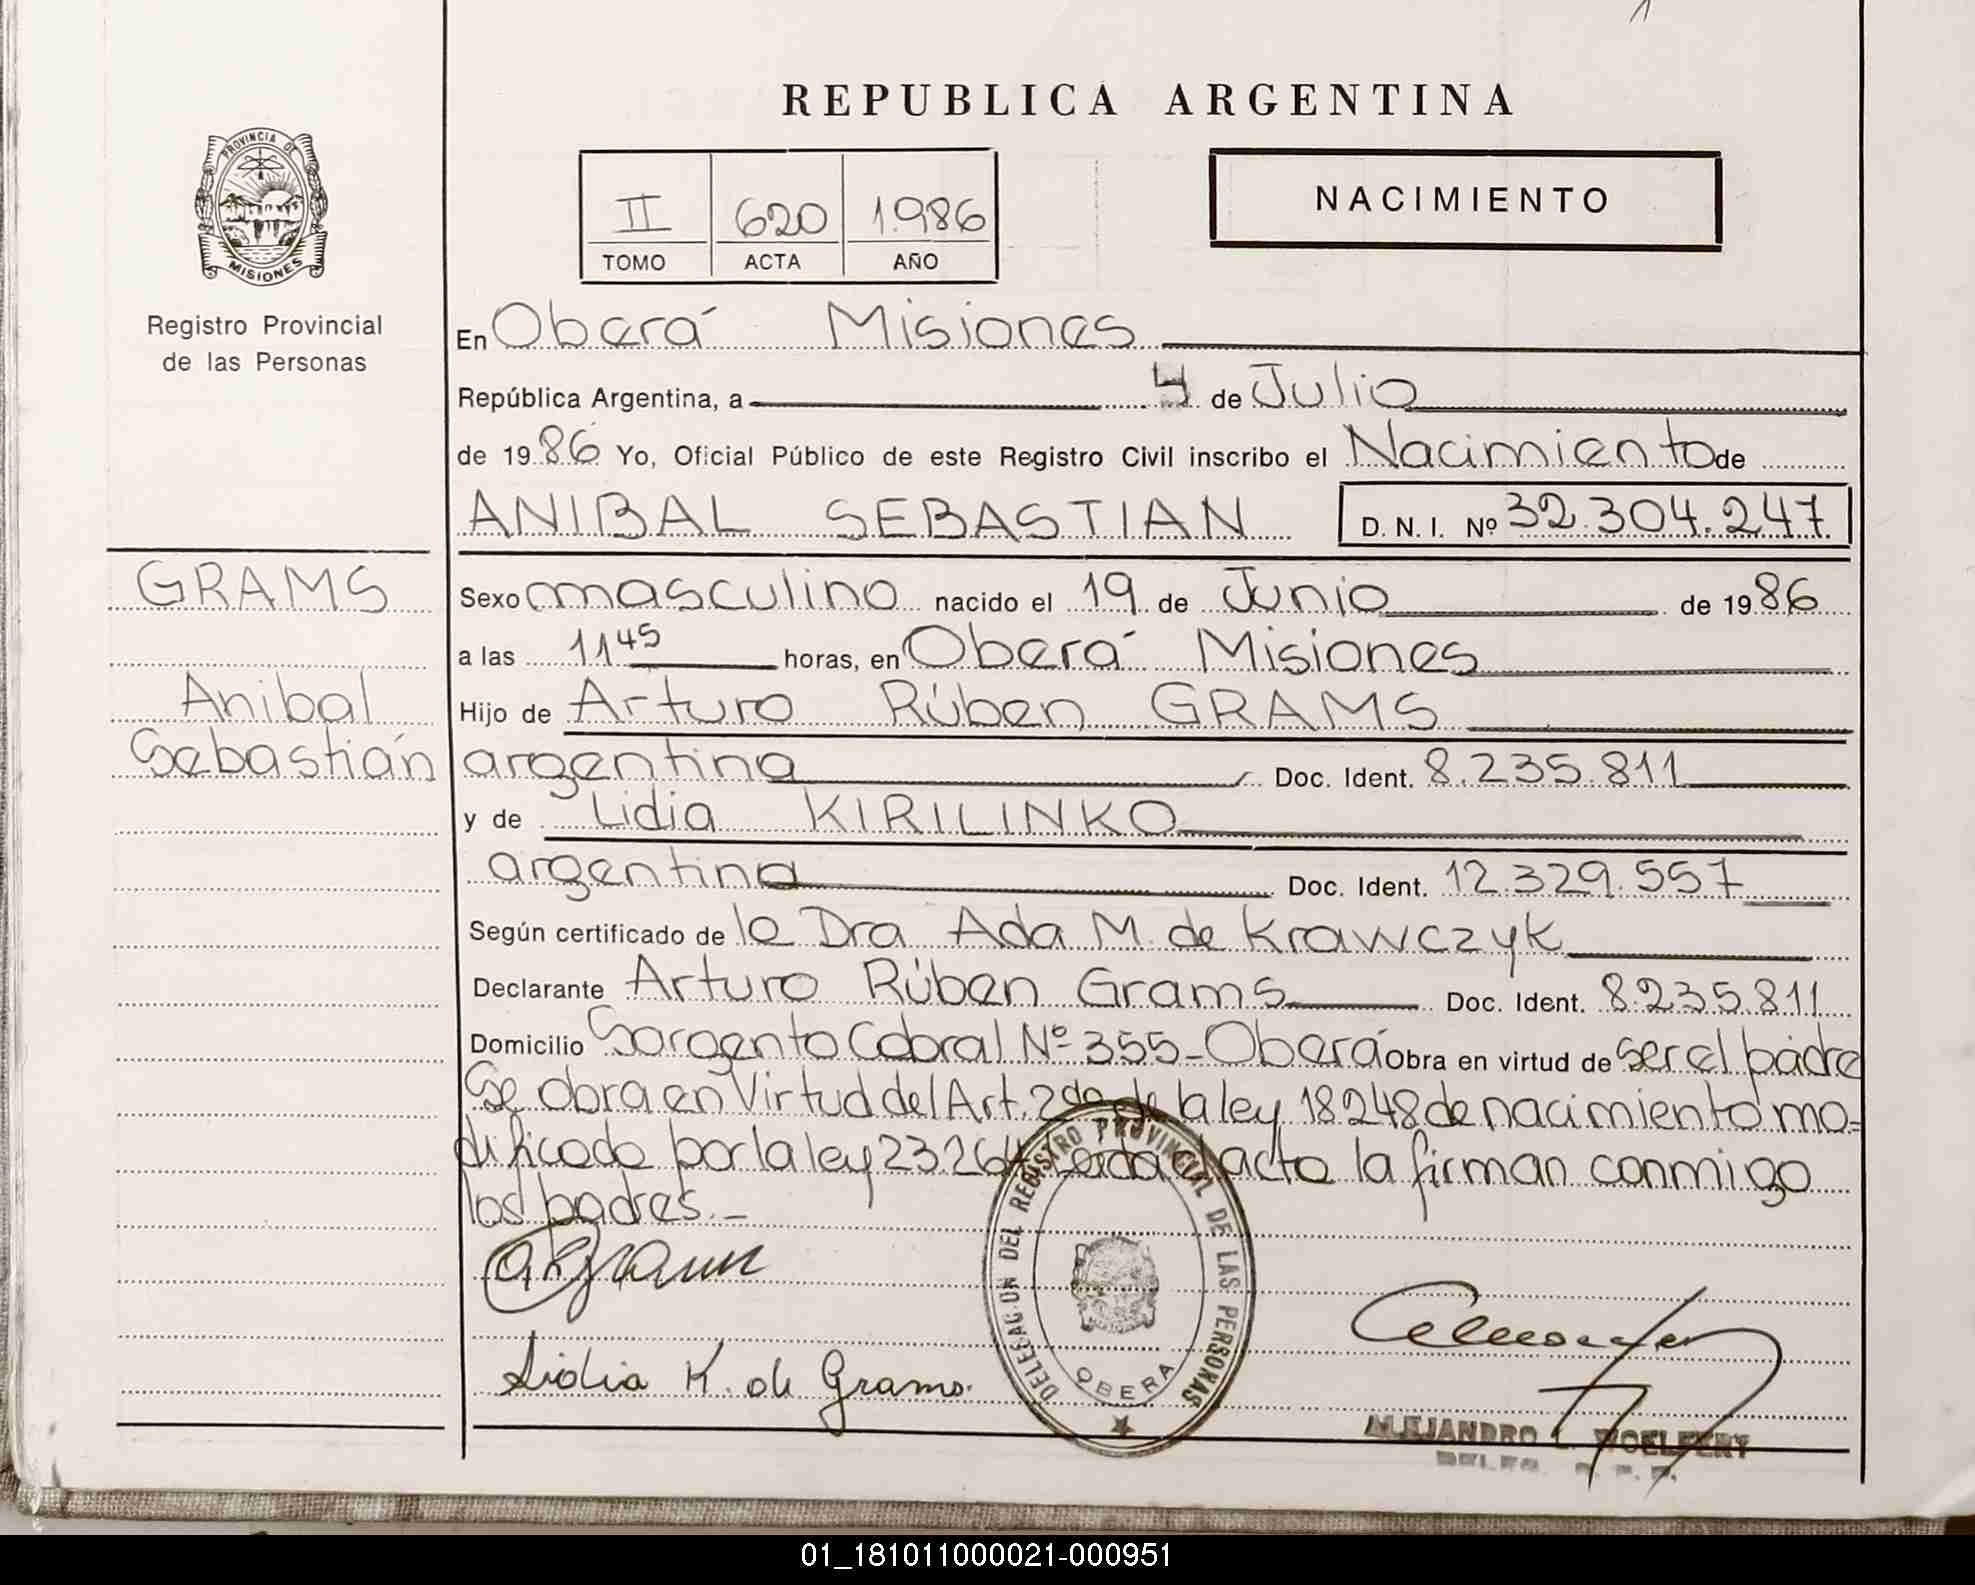 REPUBLICA ARGENTINA
PROVINCIA DE
MISIONES
Registro Provincial
de las Personas
II 620 1.986
TOMO ACTA AÑO
NACIMIENTO
En Oberá Misiones
República Argentina, a 4 de Julio
de 19 86 Yo, Oficial Público de este Registro Civil inscribo el Nacimiento de
ANIBAL SEBASTIAN D. N. I. Nº 32.304.247
GRAMS
Anibal
Sebastián
Sexo masculino nacido el 19 de Junio de 19 86
a las 11 45 horas, en Oberá Misiones
Hijo de Arturo Rúben GRAMS
argentina Doc. Ident. 8.235.811
y de Lidia KIRILINKO
argentina Doc. Ident. 12.329.557
Según certificado de la Dra Ada M. de Krawczyk
Declarante Arturo Rúben Grams Doc. Ident. 8.235.811
Domicilio Sargento Cabral Nº 355 - Oberá obra en virtud de ser el padre
Se obra en Virtud del Art. 2do de la ley 18248 de nacimiento mo=
dificado por la ley 23.264 Leida el acta la firman conmigo
los padres. -
Lidia K. de Grams.
DELEGACION DEL REGISTRO PROVINCIAL DE LAS PERSONAS
OBERA
ALEJANDRO WOELFERT
01_181011000021-000951